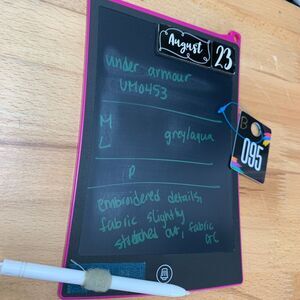 August 23
under armour
UM0453
B
095
M
L grey/aqua
P
embroidered details,
fabric slightly
stretched out, fabric
GC